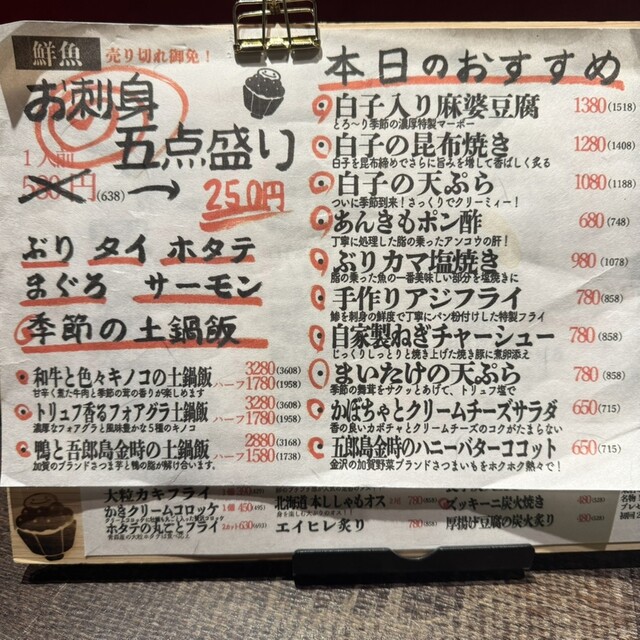 鮮魚
売り切れ御免！
お刺身
五点盛り
1人前
580円(638) → 250円
ぶり タイ ホタテ
まぐろ サーモン
季節の土鍋飯
和牛と色々キノコの土鍋飯 3280(3608)
甘辛く煮た牛肉と季節の茸の香りが楽しめます ハーフ1780(1958)
トリュフ香るフォアグラ土鍋飯 3280(3608)
濃厚なフォアグラと風味豊かな5種のキノコ ハーフ1780(1958)
鴨と五郎島金時の土鍋飯 2880(3168)
加賀のブランドさつま芋と鴨の脂が解け合います。 ハーフ1580(1738)
本日のおすすめ
白子入り麻婆豆腐 1380(1518)
とろ〜り季節の濃厚特製マーボー
白子の昆布焼き 1280(1408)
白子を昆布締めでさらに旨みを増して香ばしく炙る
白子の天ぷら 1080(1188)
ついに季節到来！さっくりでクリーミィー！
あんきもポン酢 680(748)
丁寧に処理した脂の乗ったアンコウの肝！
ぶりカマ塩焼き 980(1078)
脂の乗った魚の一番美味しい部分を塩焼きに
手作りアジフライ 780(858)
鯵を刺身の鮮度で丁寧にパン粉付けした特製フライ
自家製ねぎチャーシュー 780(858)
じっくりしっとりと焼き上げた焼き豚に煮卵添え
まいたけの天ぷら 780(858)
季節の舞茸をサクッとあげて、トリュフ塩で
かぼちゃとクリームチーズサラダ 650(715)
香の良いカボチャとクリームチーズのコクがたまらない
五郎島金時のハニーバターココット 650(715)
金沢の加賀野菜ブランドさつまいもをホクホク熱々で！
大粒カキフライ
かきクリームコロッケ 1個 450
ホタテの丸ごとフライ 2コット630
北海道 本ししゃもオス
エイヒレ炙り 780
ズッキーニ炭火焼き 480
厚揚げ豆腐の炭火炙り 480